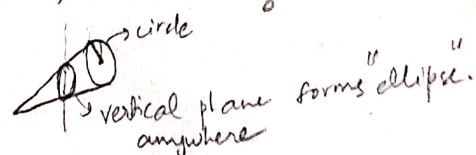 circle
vertical plane forms "ellipse".
anywhere